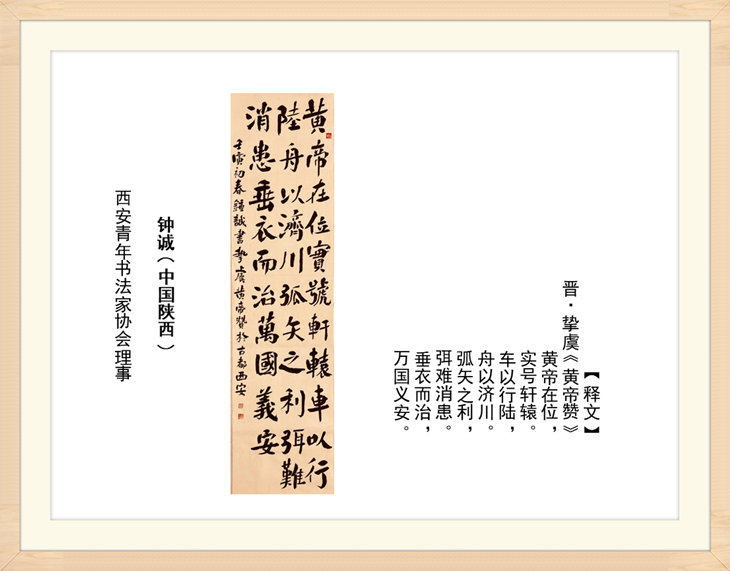 【释文】
晋·挚虞《黄帝赞》
黄帝在位，
实号轩辕。
车以行陆，
舟以济川。
弧矢之利，
弭难消患。
垂衣而治，
万国义安。
黄帝在位實號軒轅車以行
陸舟以濟川弧矢之利弭難
消患垂衣而治萬國義安
壬寅初春鍾誠書摯虞黄帝贊於古都西安
钟诚（中国陕西）
西安青年书法家协会理事